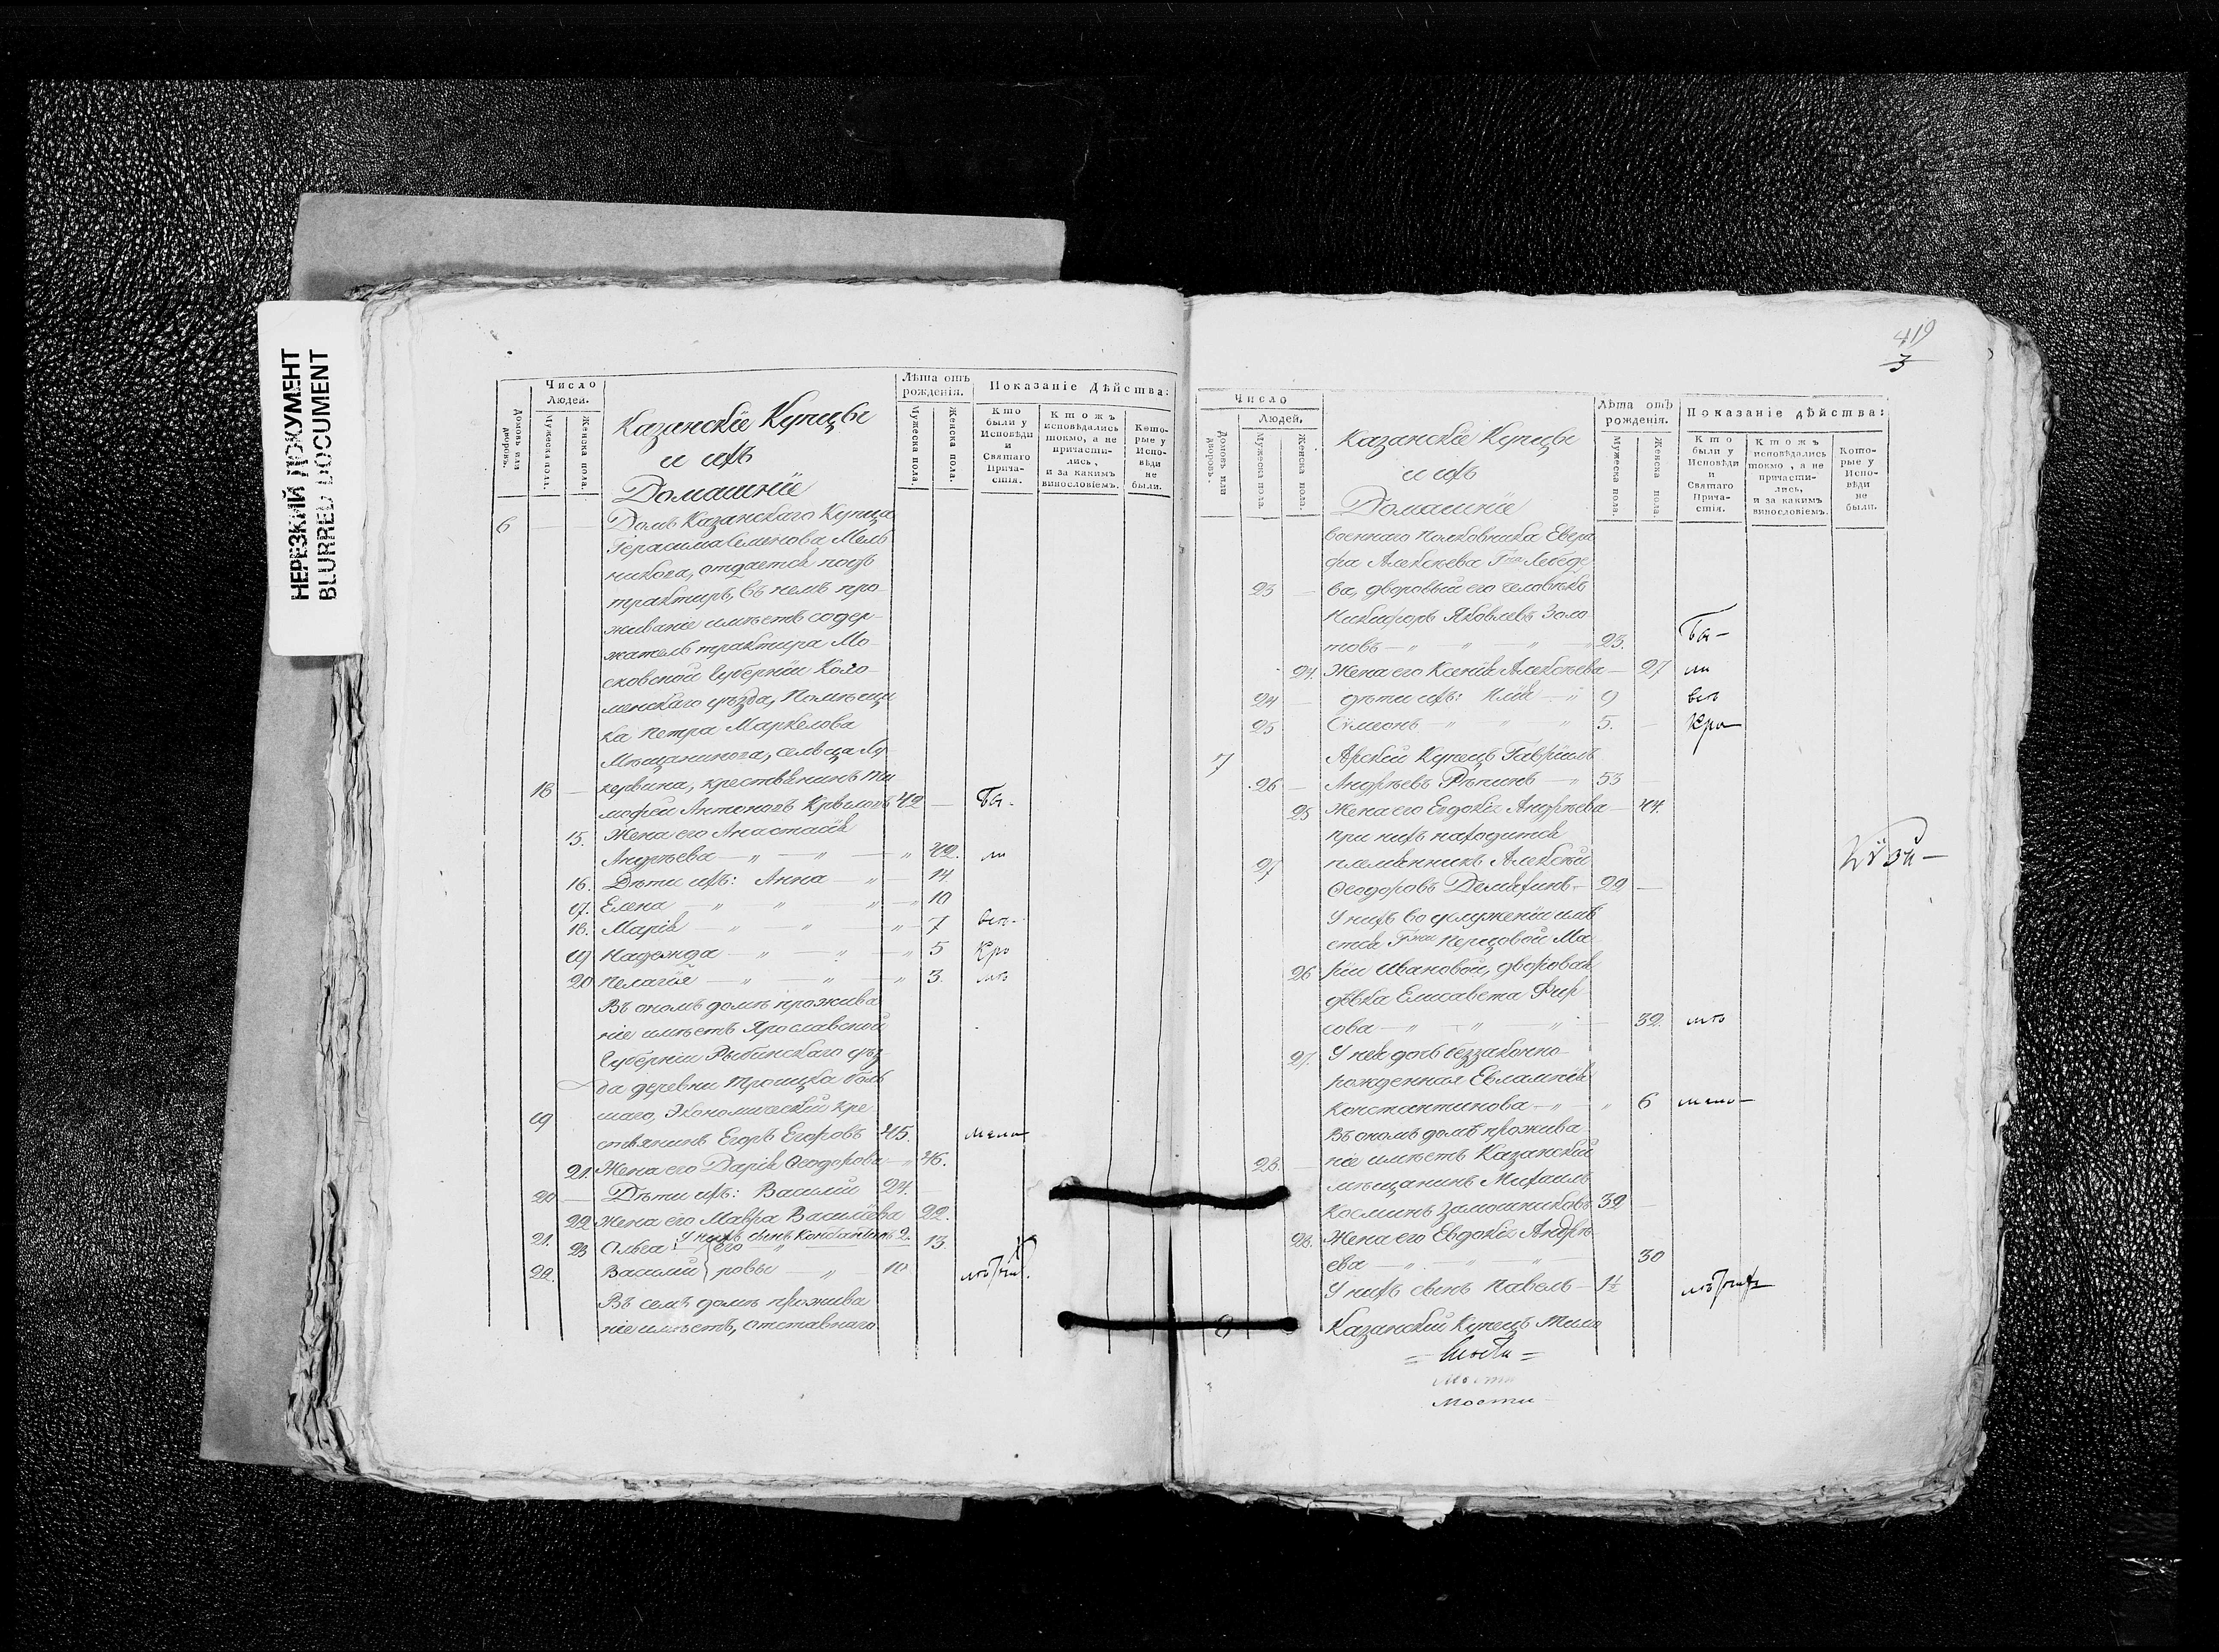 НЕРЕЗКИЙ ДОКУМЕНТ
BLURRED DOCUMENT
Домовъ или дворовъ.
Число Людей.
Мужеска полъ.
Женска пола.
Казанскїе Купцы
и ихъ
Домашнїе
Лѣта отъ рожденїя.
Мужеска пола.
Женска пола.
Показанїе Дѣйства:
Кто были у Исповѣди и Святаго Прича-стїя.
Ктожъ исповѣдались токмо, а не причасти-лись, и за какимъ винословїемъ.
Кото-рые у Испо-вѣди не были.
6 Домъ Казанскаго Купца
Герасима Семенова Мель
никова, отдается подъ
трактиръ, въ немъ про-
живанїе имѣетъ содер-
жатель трактира Мо-
сковской Губернїи Коло-
менскаго уѣзда, Помѣщи
ка Петра Маркелова
Мѣщанинова, сельца
18 — крестьянинъ Ти
мофей Антоновъ 42 — Бы-
15. Жена его Анастасїя
Андрѣева — „ — „ — „ 42. ли
16. Дѣти ихъ: Анна — „ — 14
17. Елена — „ — „ — „ 10
18. Марїя — „ — „ — „ 7 всѣ-
19 Надежда — „ — „ — „ 5 Кро
20 Пелагїя — „ — „ — „ 3. мѣ
Въ ономъ домѣ прожива
нїе имѣетъ Ярославской
Губернїи Рыбинскаго уѣз
да деревни Троицка боль
19 шаго, Экономическїй кре
стьянинъ Егоръ Егоровъ 45. мало
21. Жена его Дарїя Ѳеодорова — „ 46.
20 — Дѣти ихъ: Василїй 24. —
22 Жена его Мавра Василїева 22.
21. У нихъ сынъ Константинъ 2.
23 Ольга } его 13.
22. Василїй } ровы — „ — 10
Въ семъ домѣ прожива
нїе имѣетъ, отставнаго
419
3
Домовъ или дворовъ.
Число Людей.
Мужеска пола.
Женска пола.
Казанскїе Купцы
и ихъ
Домашнїе
Лѣта отъ рожденїя.
Мужеска пола.
Женска пола.
Показанїе дѣйства:
Кто были у Исповѣди и Святаго Прича-стїя.
Ктожъ исповѣдались токмо, а не причасти-лись, и за какимъ винословїемъ.
Кото-рые у Испо-вѣди не были.
военнаго Полковника Евгра
фа Алексѣева Гна Лебеде
23 — ва, дворовый его человѣкъ
Никифоръ Яковлевъ Золо
товъ — „ — „ — „ 23. Бы —
24. Жена его Ксенїя Алексѣева — 27 ли
24 — дѣти ихъ: Илїя — „ 9 всѣ
25 Сѵмеонъ — „ „ „ 5. — Кро—
7 Арскїй Купецъ Гаврїилъ
26 — Андрѣевъ Рѣпинъ — „ 53 —
25 Жена его Евдокїя Андрѣева — 44.
При нихъ находится
27 племянникъ Алексѣй
Ѳеодоровъ — 22 —
У нихъ во услуженїи имѣ
ется Гжи Перцовой Ма
26 рїи Ивановой, дворовая
дѣвка Елисавета Фир
сова — „ — „ — „ — 32. мѣ
27. У нея дочь беззаконно-
рожденная Евлампїя
Константинова — „ — „ 6 мало—
Въ ономъ домѣ прожива
28. — нїе имѣетъ Казанскїй
мѣщанинъ Михаилъ
Косминъ Замошниковъ 32 —
28. Жена его Евдокїя Андрѣ
ева — „ — „ — „ 30
У нихъ сынъ Павелъ — 1½
8 Казанскїй Купецъ
Мости